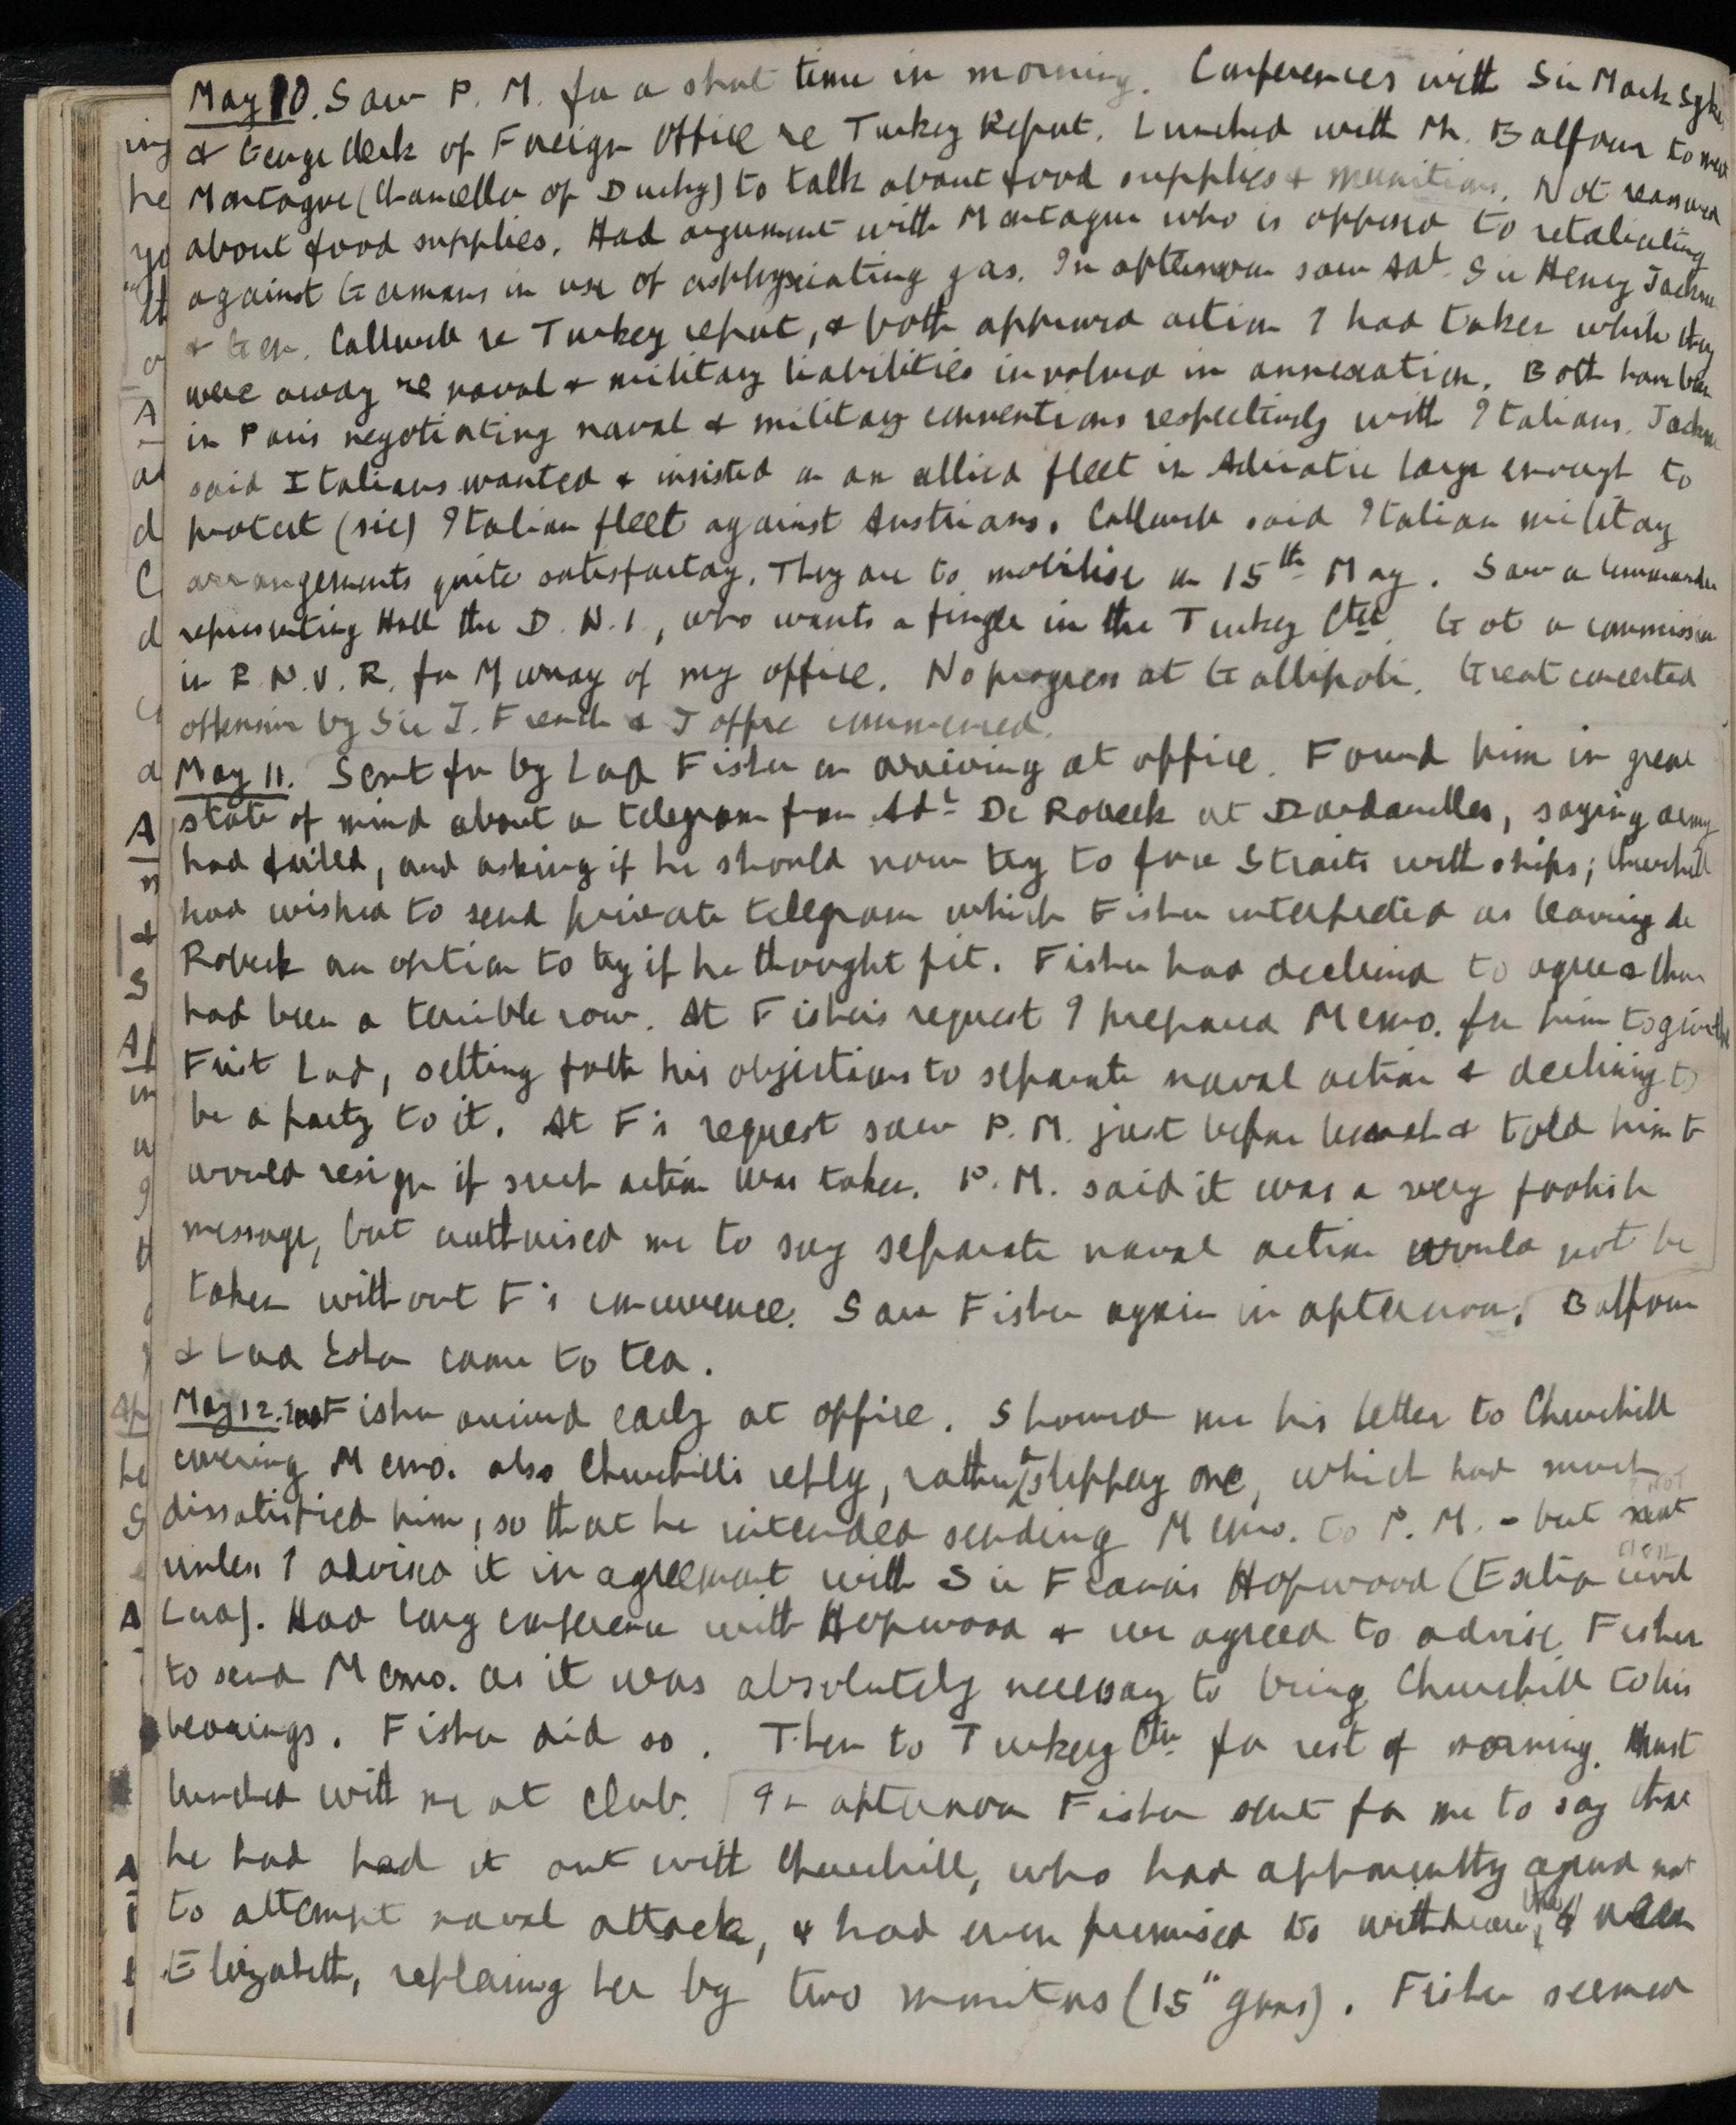 May 10. Saw P. M. for a short time in morning. Conferences with Sir Mark Sykes
& George Clerk of Foreign Office re Turkey Report. Lunched with Mr. Balfour to meet
Montague (Chancellor of Duchy) to talk about food supplies & munitions. Not reassured
about food supplies. Had argument with Montague who is opposed to retaliating
against Germans in use of asphyxiating gas. In afternoon saw Adl. Sir Henry Jackson
& Gen. Callwell re Turkey report, & both approved action I had taken while they
were away re naval & military liabilities involved in annexation. Both have been
in Paris negotiating naval & military conventions respectively with Italians. Jackson
said Italians wanted & insisted on an allied fleet in Adriatic large enough to
protect (sic) Italian fleet against Austrians. Callwell said Italian military
arrangements quite satisfactory. They are to mobilise on 15th May. Saw a Commander
representing Hall the D. N. I, who wants a finger in the Turkey Ctee. Got a commission
in R. N. V. R. for Murray of my office. No progress at Gallipoli. Great concerted
offensive by Sir J. French & Joffre commenced.
May 11. Sent for by Lord Fisher on arriving at office. Found him in great
state of mind about a telegram from Adl De Robeck at Dardanelles, saying army
had failed, and asking if he should now try to force Straits with ships; Churchill
had wished to send private telegram which Fisher interpreted as leaving de
Robeck an option to try if he thought fit. Fisher had declined to agree & there
had been a terrible row. At Fisher's request I prepared Memo. for him to give the
First Lord, setting forth his objections to separate naval action & declining to
be a party to it. At F's request saw P. M. just before lunch & told him F
would resign if such action was taken. P. M. said it was a very foolish
message, but authorised me to say separate naval action would not be
taken without F's concurrence. Saw Fisher again in afternoon. Balfour
& Lord Esher came to tea.
May 12. Fisher arrived early at office. Showed me his letter to Churchill
covering Memo. also Churchill's reply, rather a slippery one, which had much
dissatisfied him, so that he intended sending Memo. to P. M. - but not
unless I advised it in agreement with Sir Francis Hopwood (Extra Civil
Lord). Had long conference with Hopwood & we agreed to advise Fisher
to send Memo. as it was absolutely necessary to bring Churchill to his
bearings. Fisher did so. Then to Turkey Ctee for rest of morning. Hurst
lunched with me at club. In afternoon Fisher sent for me to say that
he had had it out with Churchill, who had apparently agreed not
to attempt naval attack, & had even promised to withdraw the Queen
Elizabeth, replacing her by two monitors (15" guns). Fisher seemed